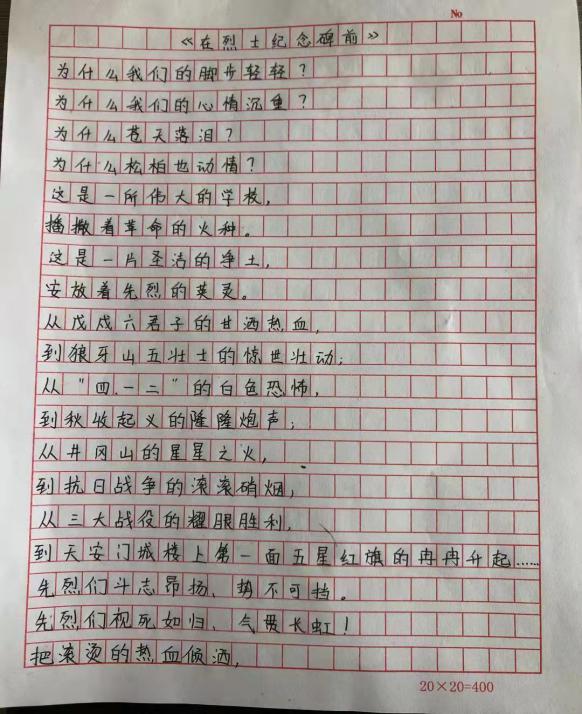 No
《在烈士纪念碑前》
为什么我们的脚步轻轻？
为什么我们的心情沉重？
为什么苍天落泪？
为什么松柏也动情？
这是一所伟大的学校，
播撒着革命的火种。
这是一片圣洁的净土，
安放着先烈的英灵。
从戊戌六君子的甘洒热血，
到狼牙山五壮士的惊世壮动；
从“四.一二”的白色恐怖，
到秋收起义的隆隆炮声；
从井冈山的星星之火，
到抗日战争的滚滚硝烟，
从三大战役的耀眼胜利，
到天安门城楼上第一面五星红旗的冉冉升起……
先烈们斗志昂扬、势不可挡。
先烈们视死如归、气贯长虹！
把滚烫的热血倾洒，
20×20=400